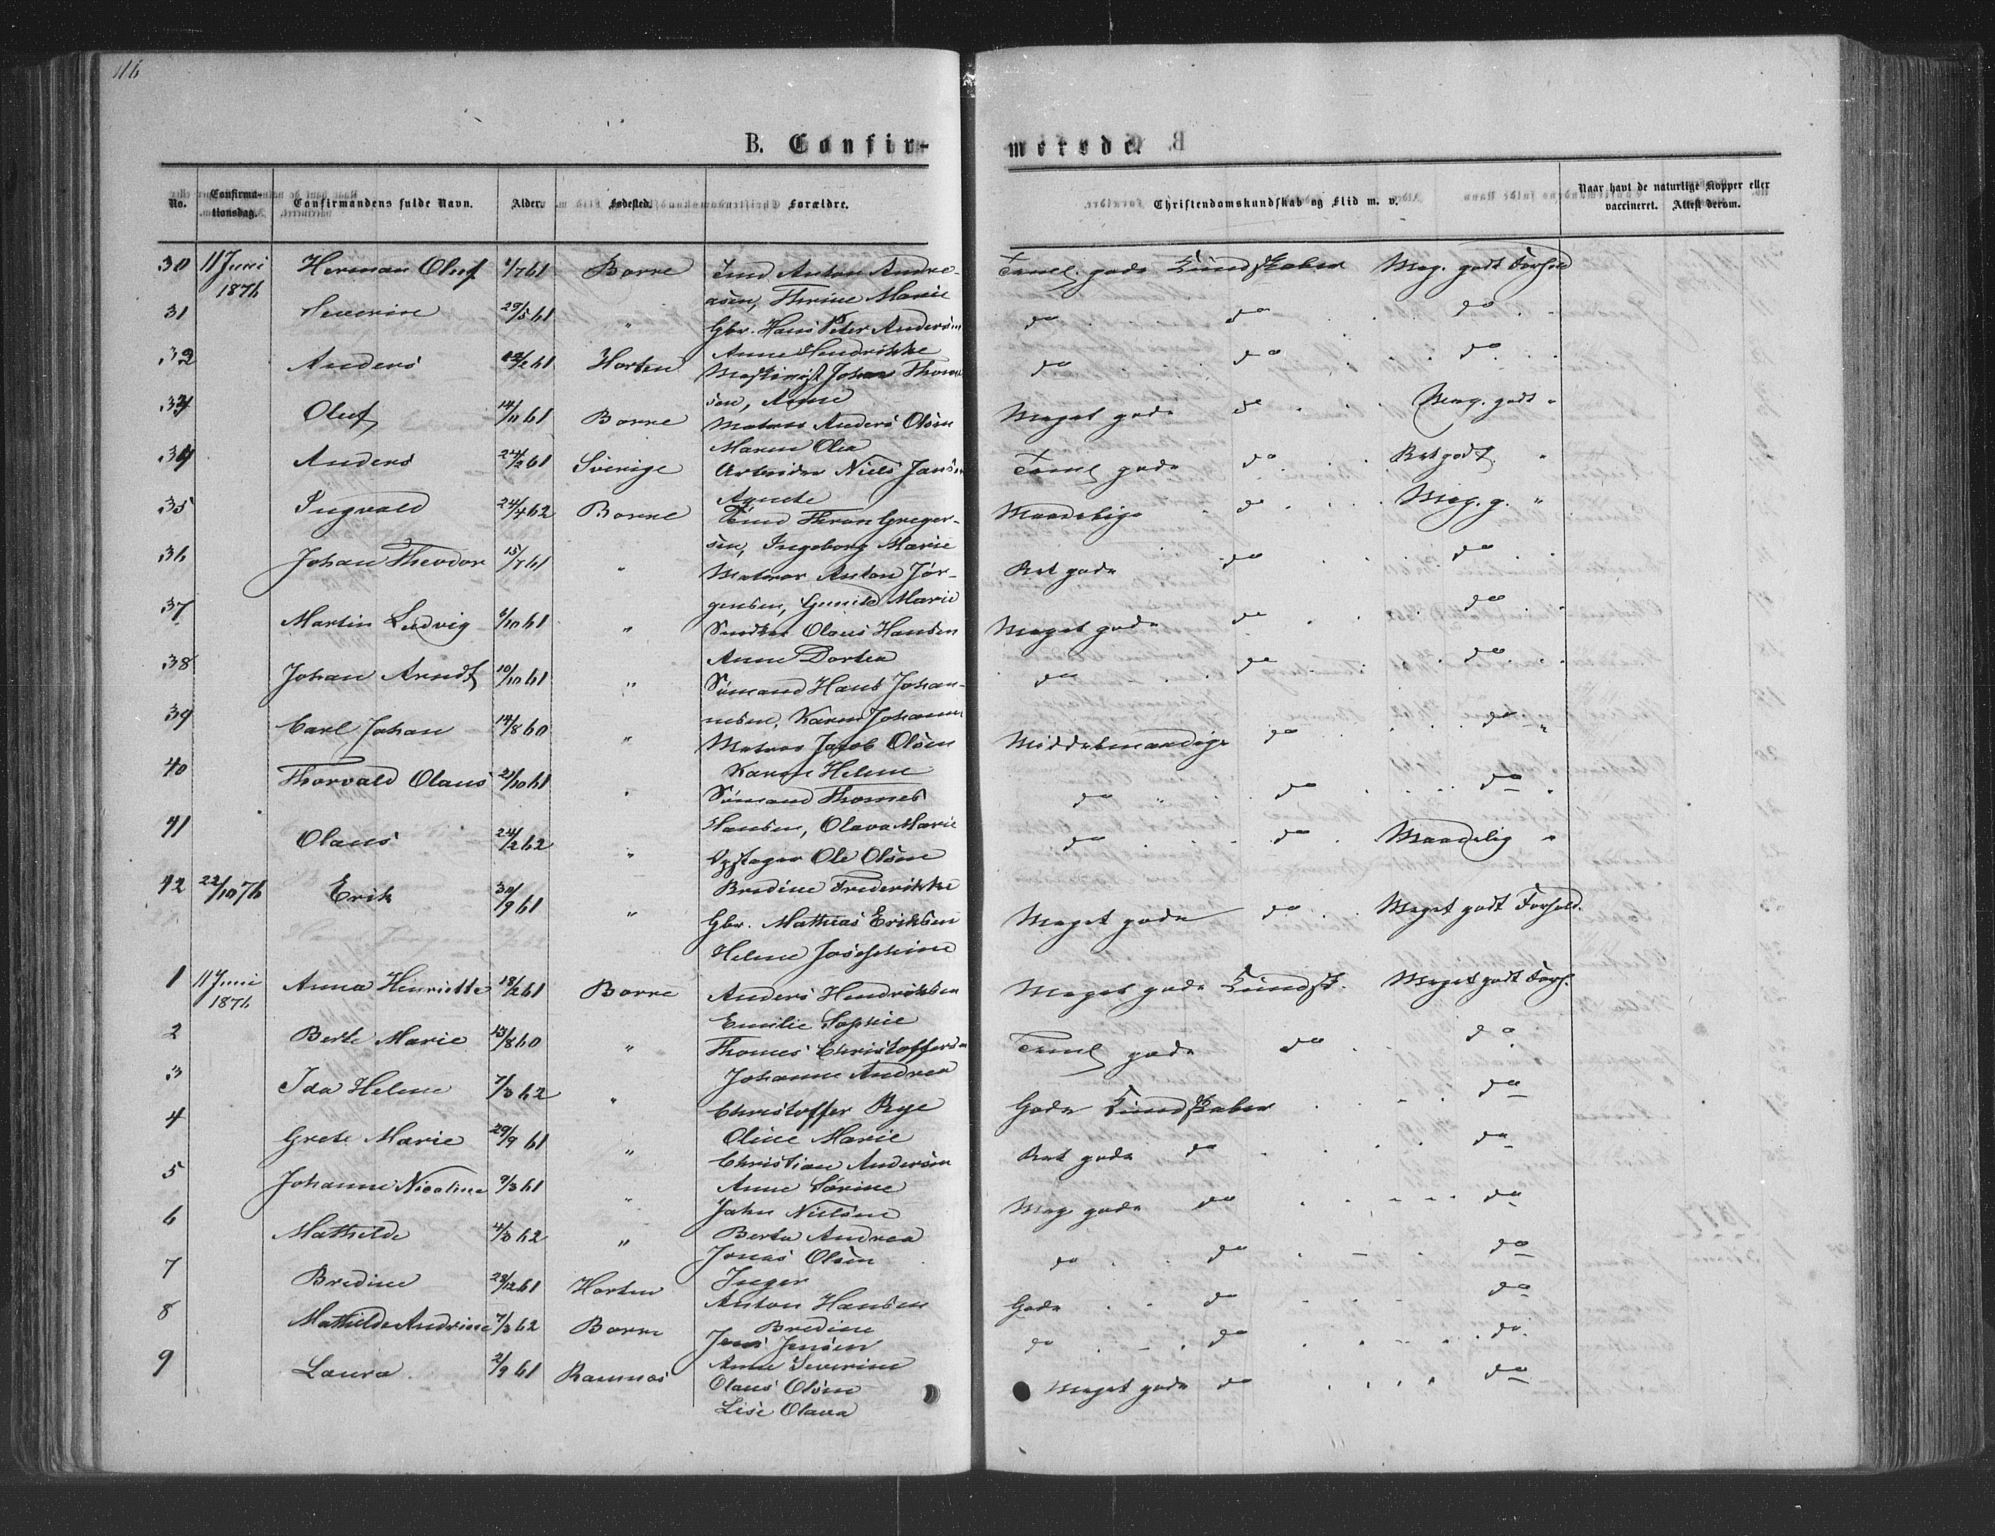 116
B. Confir-
merede.
No.
Confirma-
tionsdag.
Confirmandens fulde Navn.
Alder.
Fødested.
Forældre.
Christendomskundskab og Flid m. v.
Naar havt de naturlige Kopper eller
vaccineret. Attest derom.
30 11 Juni Herman Oluf 1/7 61 Borre Tmd Anton Andre- Teml. gode Kundskaber Meg. godt Forhold
1876 asen, Thrine Marie
31 Severine 29/5 61 " Gbr. Hans Peter Andersen do do do
Anne Hendrikke
32 Anders 12/2 61 Horten Maskinist Johan Thom- do do do
sen, Anne
33 Oluf 14/11 61 Borre Matros Anders Olsen Meget gode do Meg. godt "
Maren Olea
34 Anders 24/2 61 Sverige Arbeider Niels Jansen Teml gode do Ret godt "
Agnete
35 Ingvald 24/4 62 Borre Tmd Thron Greger- Maadelige do Meg. g. "
sen, Ingeborg Marie
36 Johan Theodor 15/7 61 " Matros Anton Jør- Ret gode do do
gensen, Gunild Marie
37 Martin Ludvig 6/10 61 " Snedker Olaus Hansen Meget gode do do
Anne Dortea
38 Johan Arndt 10/10 61 " Sømand Hans Johan- do do do
nesen, Karen Johanne
39 Carl Johan 14/8 60 " Matros Jacob Olsen Middelmaadige do do "
Karen Helene
40 Thorvald Olaus 21/10 61 " Sømand Thomas do " do do
Hansen, Olava Marie
41 Olaus 24/2 62 " Opftager Ole Olsen do do Maadelig "
Bredine Frederikke
42 22/10 76 Erik 30/9 61 " Gbr. Mathias Eriksen Meget gode do Meget godt Forhold.
Helene Josephine
1 11 Juni Anna Henriette 18/2 61 Borre Anders Hendriksen Meget gode Kundsk. Meget godt Forh.
1876 Emilie Sophie
2 Berte Marie 13/8 60 " Thomas Christoffersen Teml gode do do
Johanne Andrea
3 Ida Helene 7/3 62 " Christoffer Rye Gode Kundskaber do
Oline Marie
4 Grete Marie 29/9 61 " Christian Andersen Ret gode do do
Anne Sørine
5 Johanne Nicoline 9/3 61 " John Nielsen Meg gode do do
Berta Andrea
6 Mathilde 4/3 62 " Jonas Olsen do do do
Inger
7 Bredine 28/12 61 Horten Anton Hansen Gode do do
Bredine
8 Mathilde Andrine 7/3 62 Borre Jens Jensen do do do.
Anne Severine
9 Laura 2/9 61 Ramnæs Olaus Olsen Meget gode do do
Lise Olava